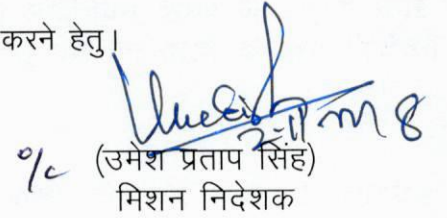 करने हेतु।
o/c (उमेश प्रताप सिंह)
मिशन निदेशक